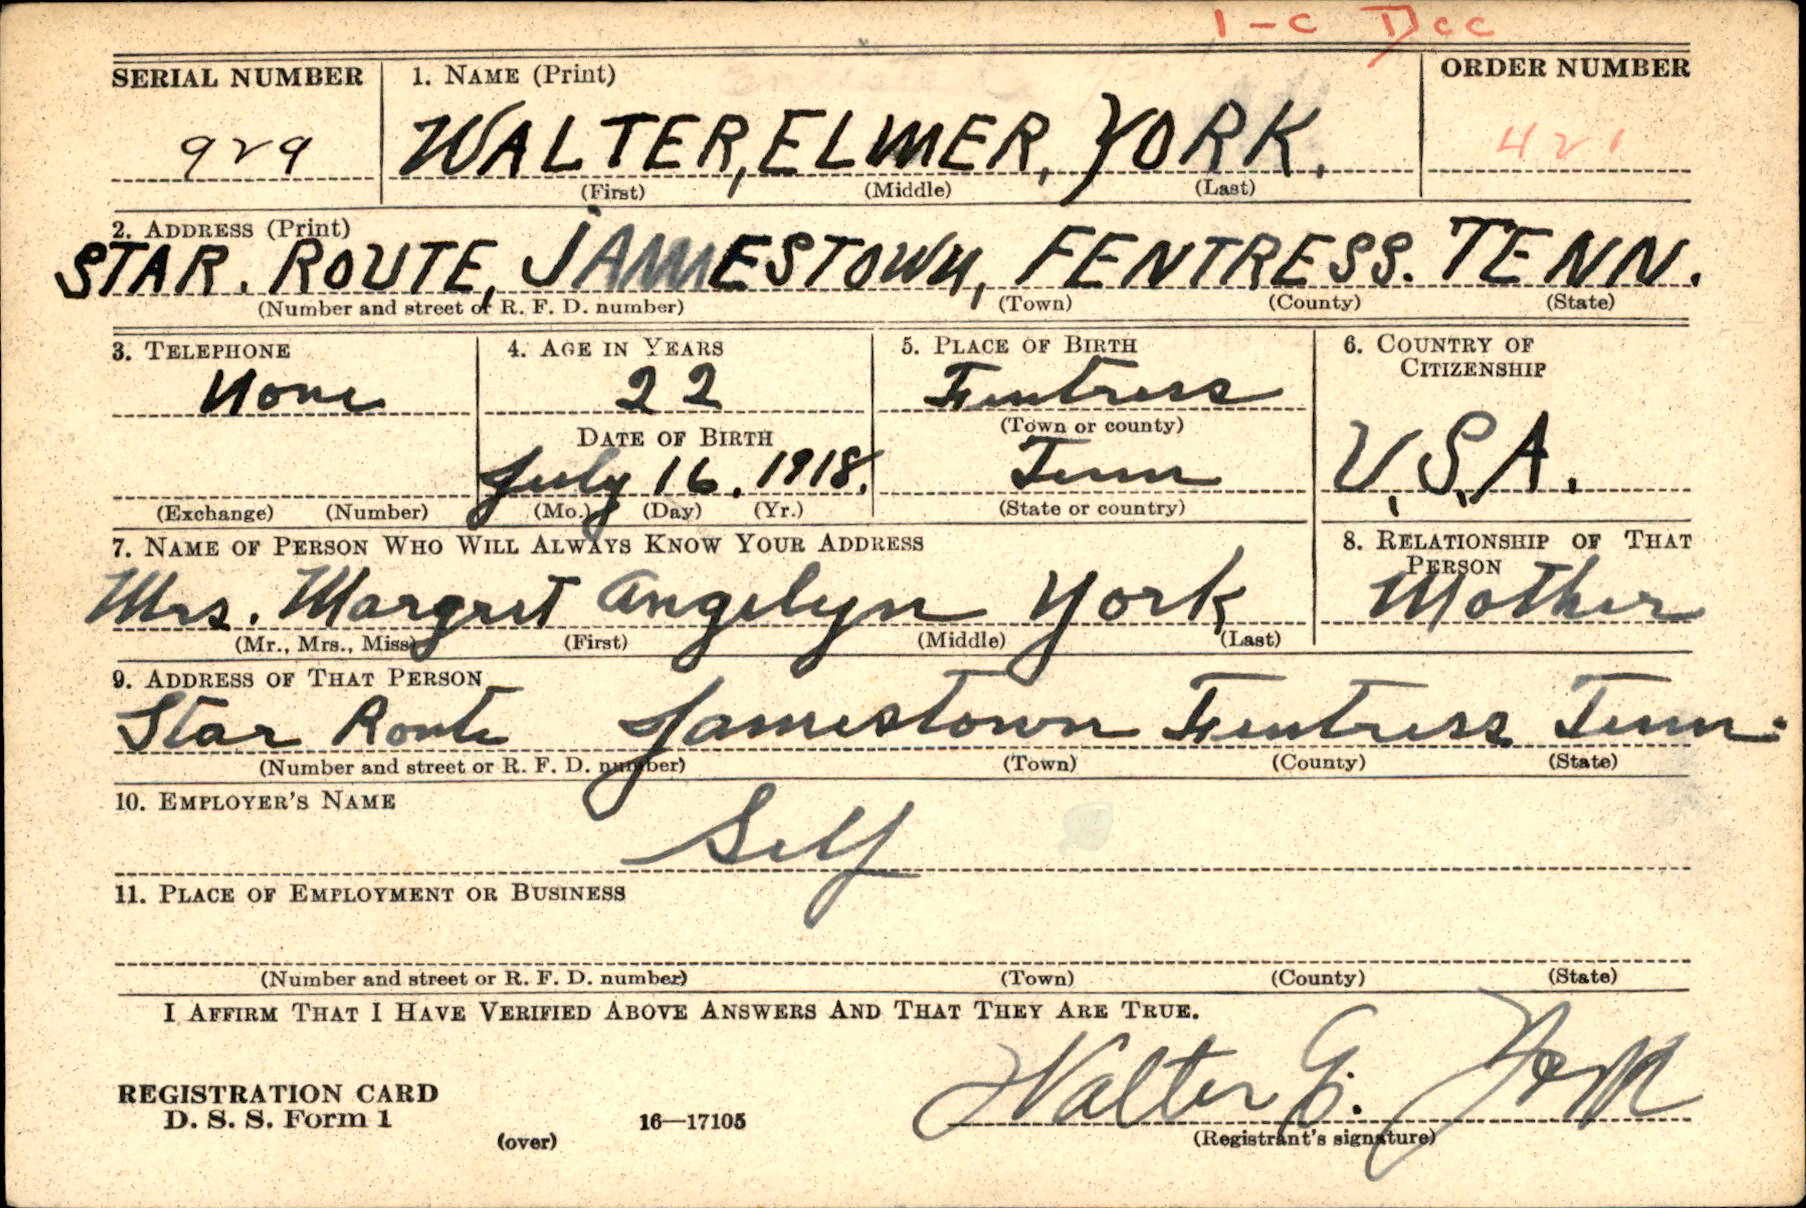 1-C Dec
SERIAL NUMBER 1. NAME (Print) ORDER NUMBER
929 WALTER, ELMER, YORK. 421
(First) (Middle) (Last)
2. ADDRESS (Print)
STAR. ROUTE, JAMESTOWN, FENTRESS. TENN.
(Number and street or R. F. D. number) (Town) (County) (State)
3. TELEPHONE 4. AGE IN YEARS 5. PLACE OF BIRTH 6. COUNTRY OF
CITIZENSHIP
None 22 Fentress
DATE OF BIRTH (Town or county)
July 16, 1918. Tenn U.S.A.
(Exchange) (Number) (Mo.) (Day) (Yr.) (State or country)
7. NAME OF PERSON WHO WILL ALWAYS KNOW YOUR ADDRESS 8. RELATIONSHIP OF THAT
PERSON
Mrs. Margret Angelyn York Mother
(Mr., Mrs., Miss) (First) (Middle) (Last)
9. ADDRESS OF THAT PERSON
Star Route Jamestown Fentress Tenn.
(Number and street or R. F. D. number) (Town) (County) (State)
10. EMPLOYER'S NAME
Self
11. PLACE OF EMPLOYMENT OR BUSINESS
(Number and street or R. F. D. number) (Town) (County) (State)
I AFFIRM THAT I HAVE VERIFIED ABOVE ANSWERS AND THAT THEY ARE TRUE.
REGISTRATION CARD
D. S. S. Form 1 16—17105 Walter E. York
(over) (Registrant's signature)